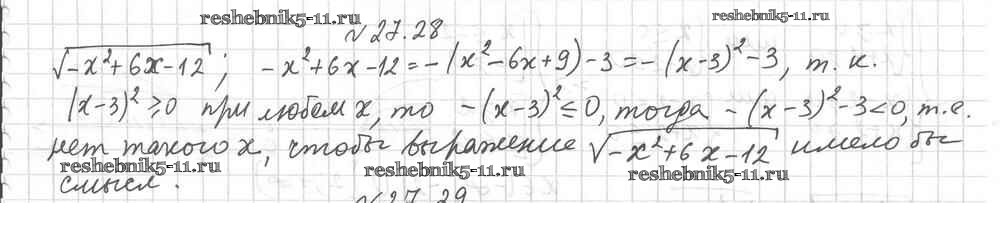 reshebnik5-11.ru
reshebnik5-11.ru
№27.28
√(-x²+6x-12); -x²+6x-12=-(x²-6x+9)-3=-(x-3)²-3, т.к.
(x-3)²≥0 при любем x, то -(x-3)²≤0, тогда -(x-3)²-3<0, т.е.
нет такого x, чтобы выражение √(-x²+6x-12) имело бы
reshebnik5-11.ru
reshebnik5-11.ru
смысл.
№27.29